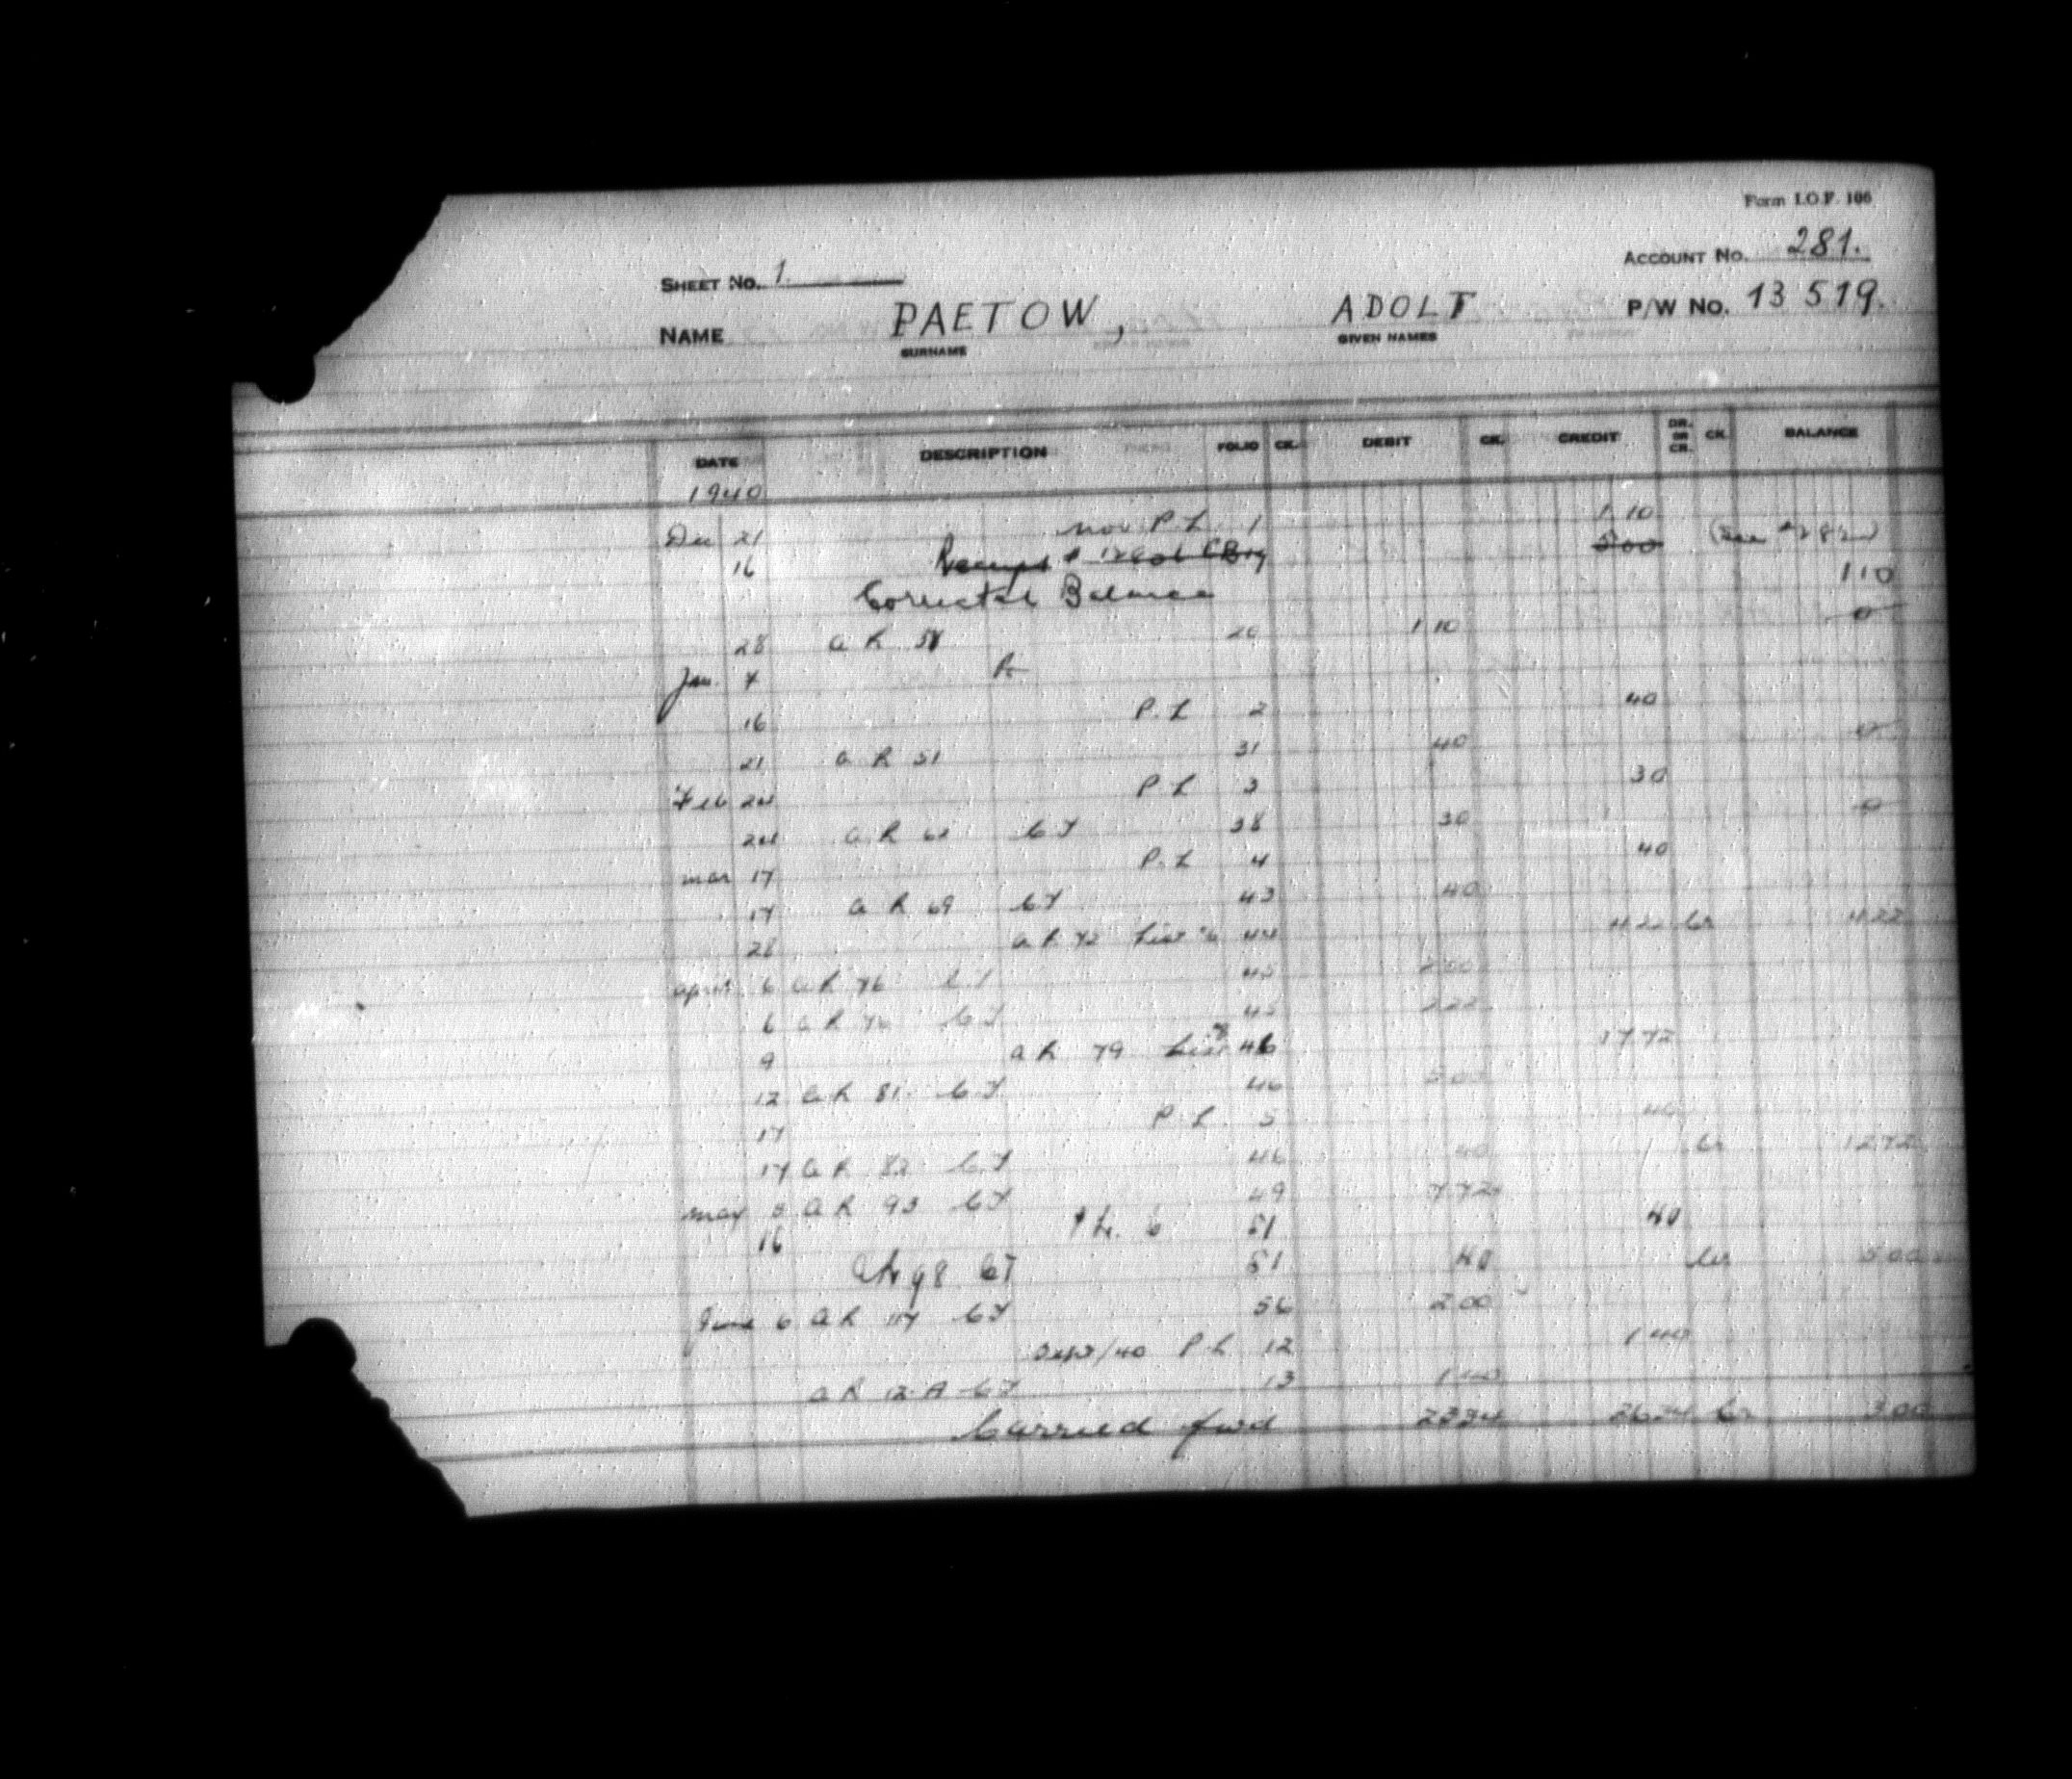 Form I.O.F. 106
SHEET No. 1.
ACCOUNT No. 281.
NAME PAETOW, ADOLF P/W No. 13 519.
SURNAME GIVEN NAMES
DATE DESCRIPTION FOLIO CK. DEBIT CK. CREDIT DR. OR CR. CK. BALANCE
1940
Dec 21 Nov P L 1 1 10
16 Receipt # CB 19 5 00 (See # 282)
Corrected Balance 1 10
28 a R 58 20 1 10 0
Jan. 4
16 P. L 2 40
21 a R 51 31 40 0
Feb 24 P L 3 30
24 a R 62 C T 38 30 0
mar 17 P. L 4 40
17 a R 69 C T 43 40
28 a R 72 List 44 4 22 Cr 4 22
april 6 a R 76 C T 45 2 00
6 a R 76 C T 45 2 22
9 a R 79 List 46 17 72
12 a R 81 C T 46 5 00
17 P. L 5 40
17 a R 82 C T 46 40 Cr 12 72
may 8 a R 93 C T 49 7 72
16 P L. 6 51 40
a R 98 C T 51 40 Cr 5 00
June 6 a R 117 C T 56 2 00
Sept/40 P L 12 1 40
a R 12 A C T 13 1 40
Carried fwd 23 34 26 34 Cr 3 00